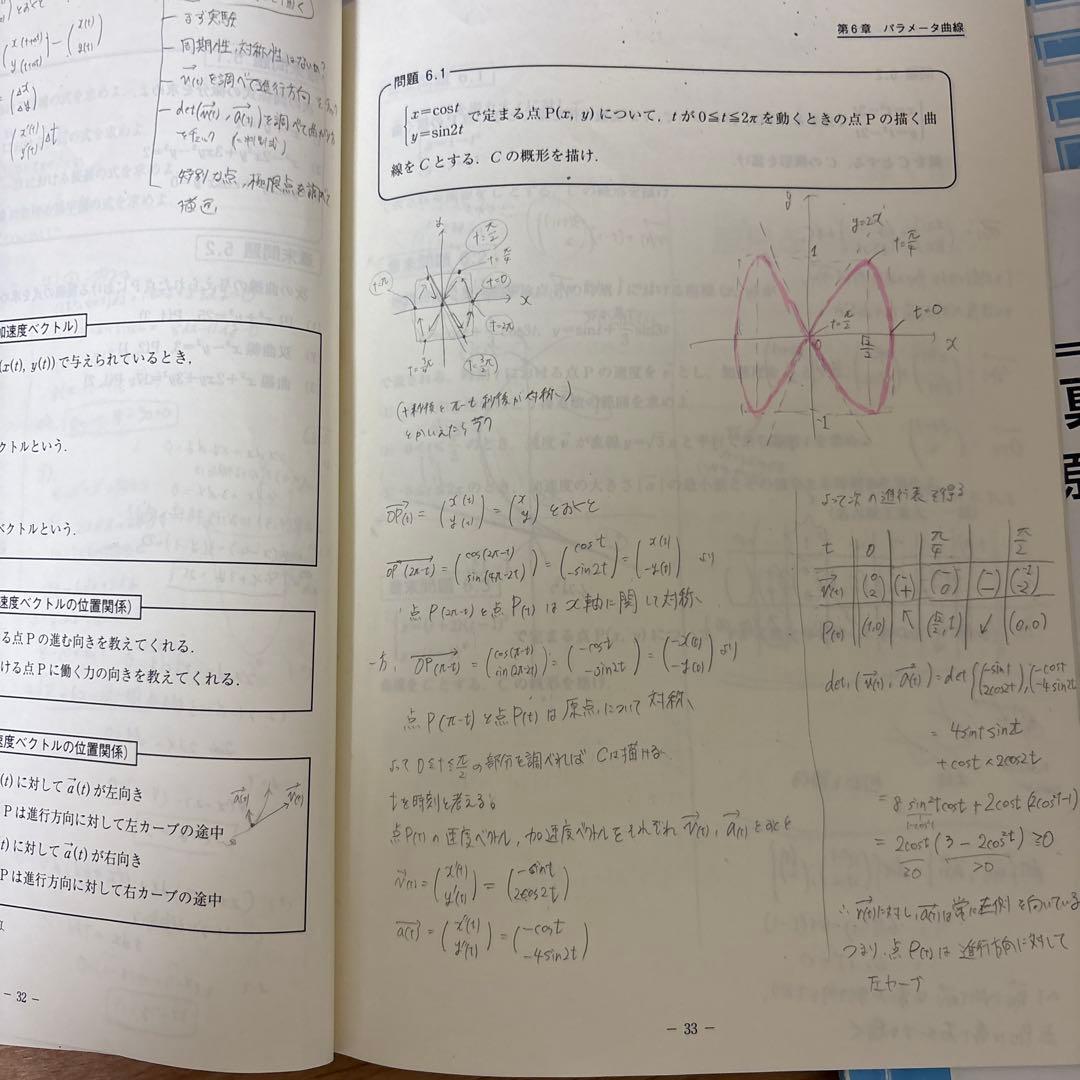 まず実験
同期性, 対称性はないか?
特別な点, 極限点を調べて
描画
加速度ベクトル)
(x(t), y(t))で与えられているとき,
クトルという.
ベクトルという.
速度ベクトルの位置関係)
る点Pの進む向きを教えてくれる.
ける点Pに働く力の向きを教えてくれる.
速度ベクトルの位置関係)
(t)に対してa(t)が左向き
Pは進行方向に対して左カーブの途中
(t)に対してa(t)が右向き
Pは進行方向に対して右カーブの途中
a(t)
v(t)
— 32 —
第6章 パラメータ曲線
問題 6.1
x=cost
y=sin2t
で定まる点P(x, y)について, tが0≦t≦2πを動くときの点Pの描く曲
線をCとする. Cの概形を描け.
t=π/2
t=π/4
t=π
t=0
x
t=2π
t=3/4π
t=3/2π
y
y=2x
1
t=π/4
t=π/2
t=0
0
√2/2
x
-1
OP(t) = (x(t) y(t)) = (x y) とおくと
OP(2π-t) = (cos(2π-t) sin(4π-2t)) = (cost -sin2t) = (x(t) -y(t)) より
点P(2π-t)と点P(t)はx軸に関して対称、
一方, OP(π-t) = (cos(π-t) sin(2π-2t)) = (-cost -sin2t) = (-x(t) -y(t)) より
点P(π-t)と点P(t)は原点について対称、
よって 0≦t≦π/2 の部分を調べればCは描ける
tを時刻と考える。
点P(t)の速度ベクトル, 加速度ベクトルをそれぞれv(t), a(t)とおくと
v(t) = (x'(t) y'(t)) = (-sint 2cos2t)
a(t) = (x''(t) y''(t)) = (-cost -4sin2t)
よって次の進行表を得る
t 0 π/4 π/2
v(t) (0 2) (- +) (- 0) (- -) (-1 -2)
P(t) (1,0) ↖ (√2/2, 1) ↙ (0,0)
det(v(t), a(t)) = det((-sint 2cos2t), (-cost -4sin2t
= 4sint sin2t
+ cost×2cos2t
= 8sin²tcost + 2cost(2cos²t-1)
1-cos²t
= 2cost(3-2cos²t) ≧0
≧0 >0
∴ v(t)に対し, a(t)は常に左側を向いている
つまり, 点P(t)は進行方向に対して
左カーブ
— 33 —